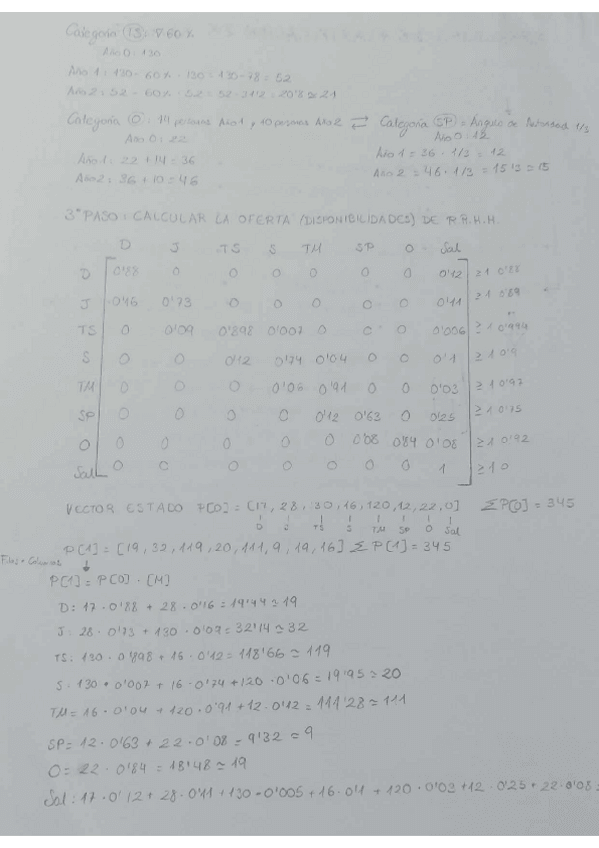 Categoria TS: ∇ 60%
Año 0: 130
Año 1: 130 - 60% · 130 = 130 - 78 = 52
Año 2 = 52 - 60% · 52 = 52 - 31'2 = 20'8 ≃ 21
Categoría O: 14 personas Año 1 y 10 personas Año 2 ⇄ Categoría SP = Ángulo de Autoridad 1/3
Año 0: 22
Año 0: 12
Año 1: 22 + 14 = 36
Año 1 = 36 · 1/3 = 12
Año 2: 36 + 10 = 46
Año 2 = 46 · 1/3 = 15'3 ≃ 15
3º PASO: CALCULAR LA OFERTA (DISPONIBILIDADES) DE R.R.H.H.
D J TS S TM SP O Sal
D 0'88 0 0 0 0 0 0 0'12 ≥1 0'88
J 0'16 0'73 0 0 0 0 0 0'11 ≥1 0'89
TS 0 0'09 0'898 0'007 0 0 0 0'006 ≥1 0'994
S 0 0 0'12 0'74 0'04 0 0 0'1 ≥1 0'9
TM 0 0 0 0'06 0'91 0 0 0'03 ≥1 0'97
SP 0 0 0 0 0'12 0'63 0 0'25 ≥1 0'75
O 0 0 0 0 0 0'08 0'84 0'08 ≥1 0'92
Sal 0 0 0 0 0 0 0 1 ≥1 0
VECTOR ESTADO P[0] = [17, 28, 130, 16, 120, 12, 22, 0] ΣP[0] = 345
TS S TM SP O Sal
P[1] = [19, 32, 119, 20, 111, 9, 19, 16] ΣP[1] = 345
Filas · Columnas
P[1] = P[0] · [M]
D: 17 · 0'88 + 28 · 0'16 = 19'44 ≃ 19
J: 28 · 0'73 + 130 · 0'09 = 32'14 ≃ 32
TS: 130 · 0'898 + 16 · 0'12 = 118'66 ≃ 119
S: 130 · 0'007 + 16 · 0'74 + 120 · 0'06 = 19'95 ≃ 20
TM = 16 · 0'04 + 120 · 0'91 + 12 · 0'12 = 111'28 ≃ 111
SP = 12 · 0'63 + 22 · 0'08 = 9'32 ≃ 9
O = 22 · 0'84 = 18'48 ≃ 19
Sal: 17 · 0'12 + 28 · 0'11 + 130 · 0'005 + 16 · 0'1 + 120 · 0'03 + 12 · 0'25 + 22 · 0'08 =